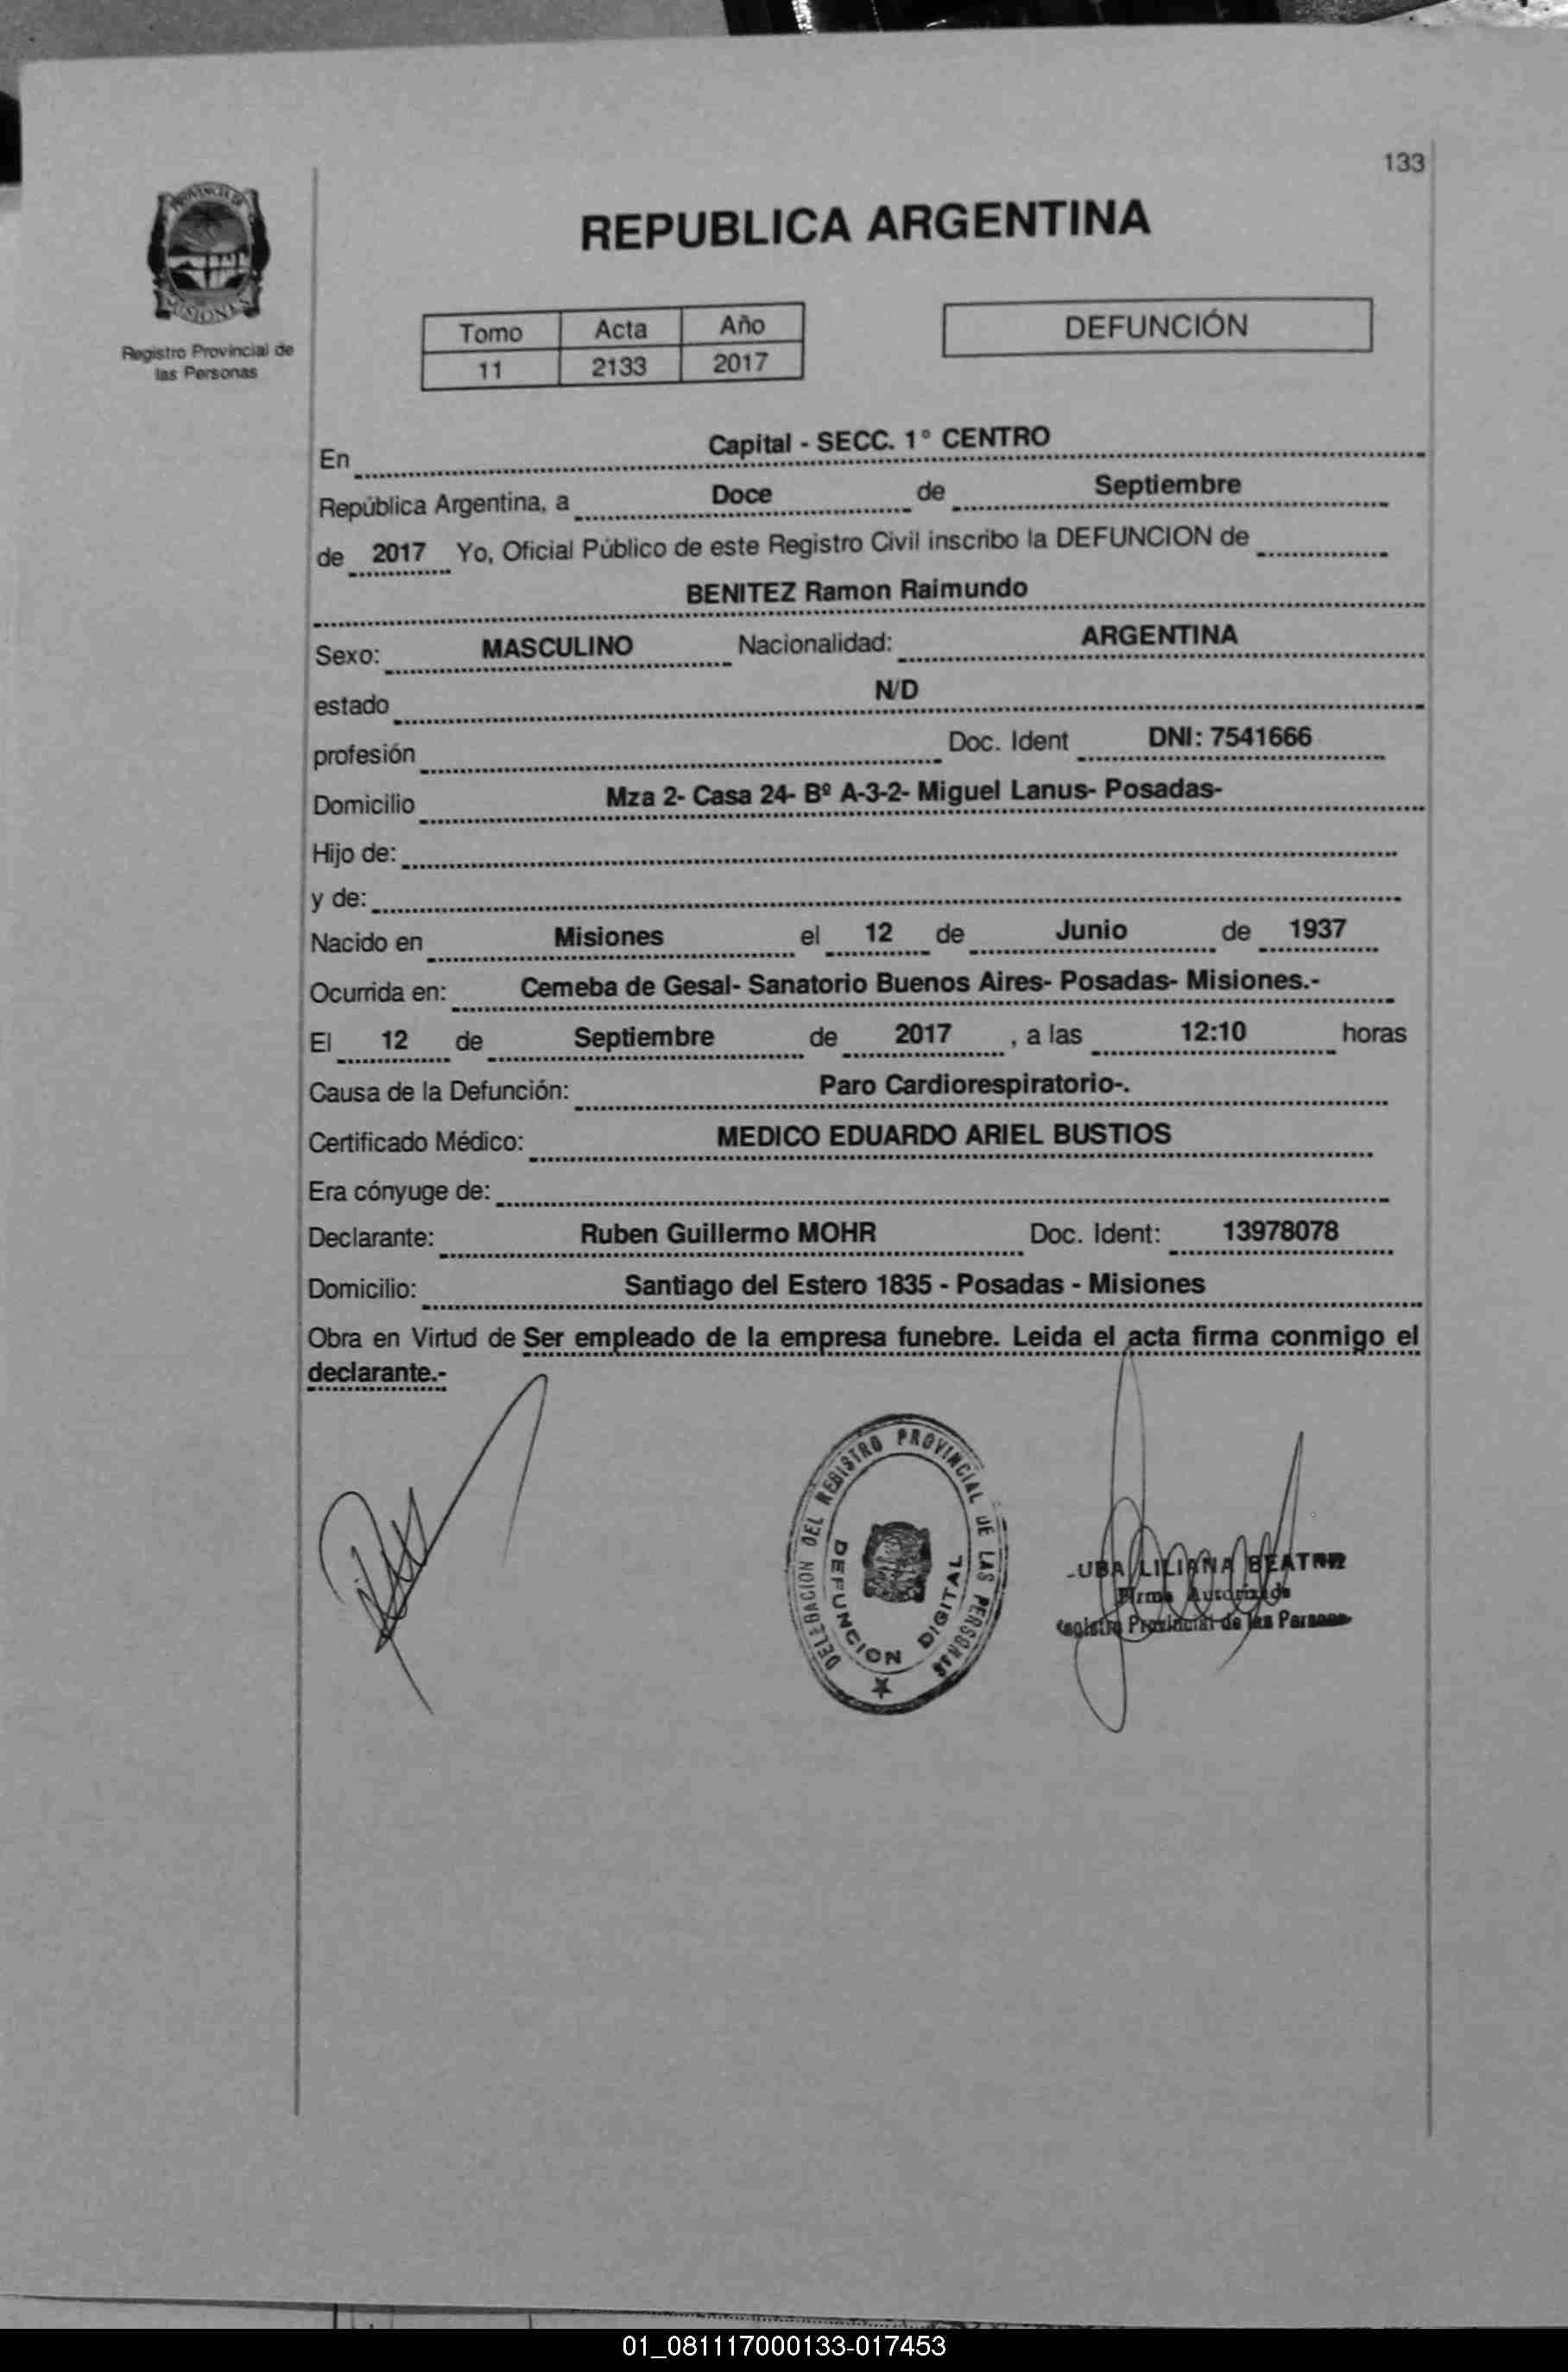 133
PROVINCIA DE
MISIONES
Registro Provincial de
las Personas
REPUBLICA ARGENTINA
Tomo Acta Año
11 2133 2017
DEFUNCIÓN
En Capital - SECC. 1° CENTRO
República Argentina, a Doce de Septiembre
de 2017 Yo, Oficial Público de este Registro Civil inscribo la DEFUNCION de
BENITEZ Ramon Raimundo
Sexo: MASCULINO Nacionalidad: ARGENTINA
estado N/D
profesión Doc. Ident DNI: 7541666
Domicilio Mza 2- Casa 24- Bº A-3-2- Miguel Lanus- Posadas-
Hijo de:
y de:
Nacido en Misiones el 12 de Junio de 1937
Ocurrida en: Cemeba de Gesal- Sanatorio Buenos Aires- Posadas- Misiones.-
El 12 de Septiembre de 2017 , a las 12:10 horas
Causa de la Defunción: Paro Cardiorespiratorio-.
Certificado Médico: MEDICO EDUARDO ARIEL BUSTIOS
Era cónyuge de:
Declarante: Ruben Guillermo MOHR Doc. Ident: 13978078
Domicilio: Santiago del Estero 1835 - Posadas - Misiones
Obra en Virtud de Ser empleado de la empresa funebre. Leida el acta firma conmigo el
declarante.-
DELEGACION DEL REGISTRO PROVINCIAL DE LAS PERSONAS
DEFUNCION DIGITAL
LILIANA BEATRIZ
Firma Autorizada
Registro Provincial de las Personas
01_081117000133-017453